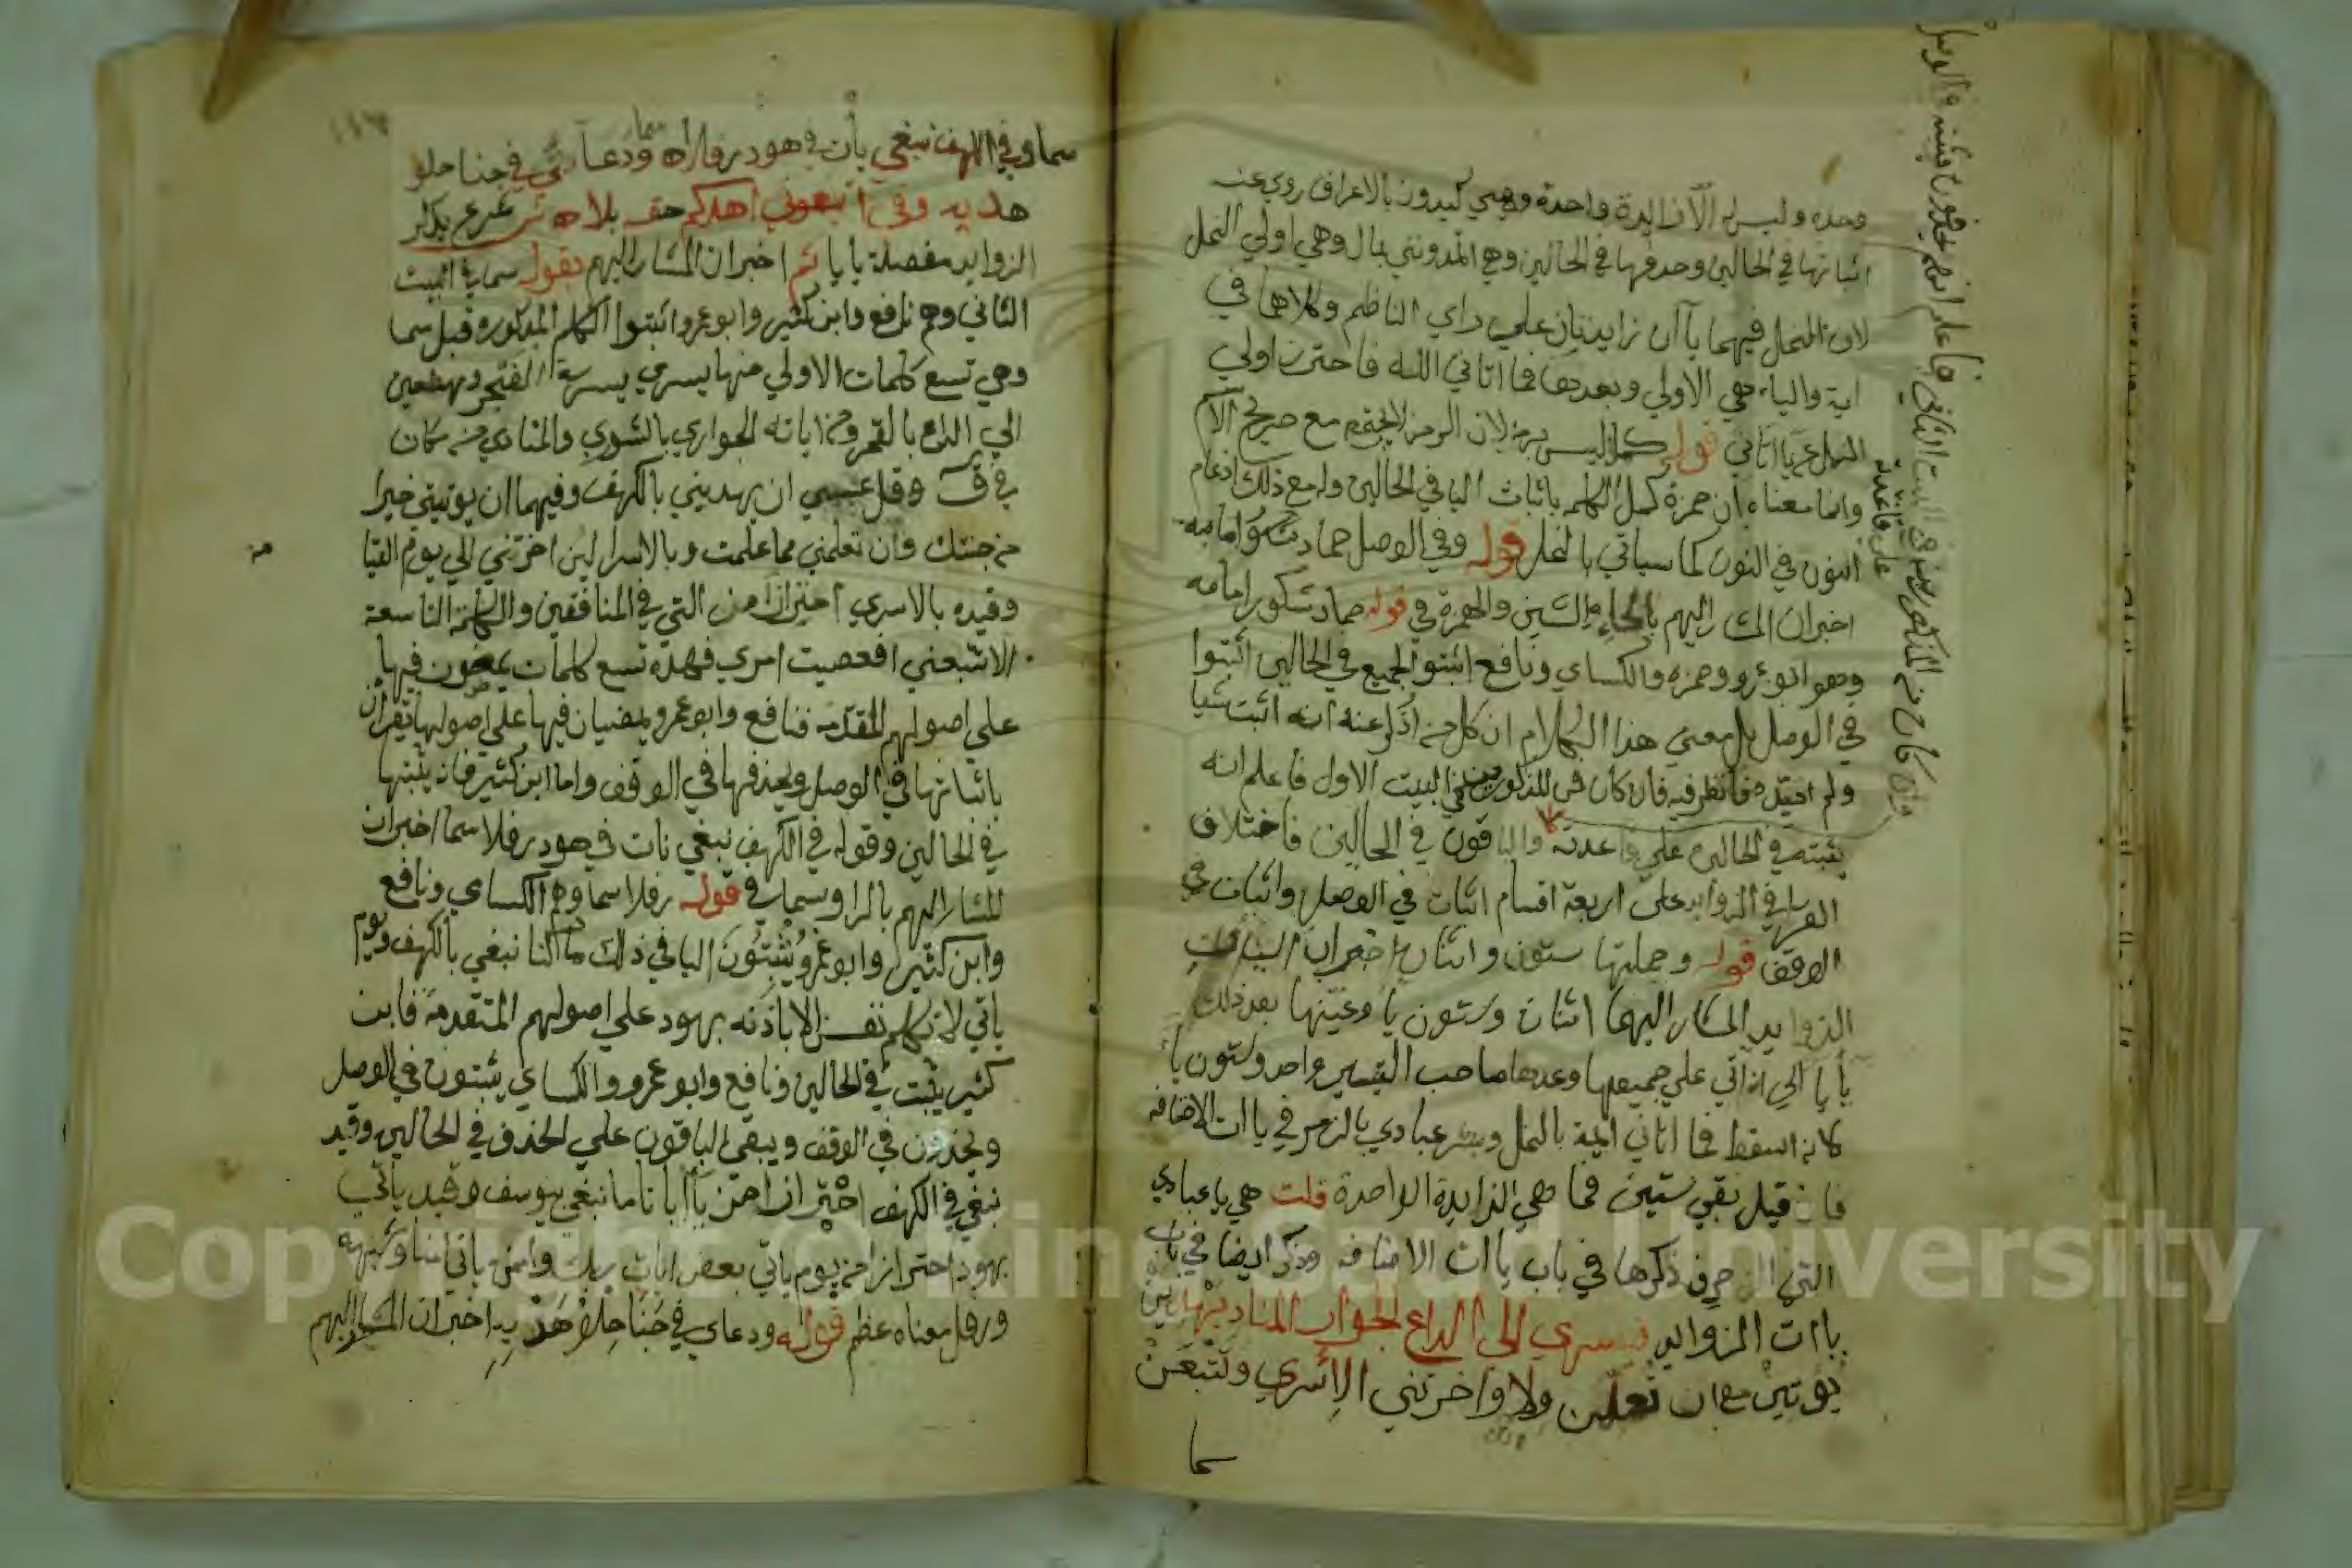 وحده وليس له الا زايدة واحدة وهي كيدون بالاعراف روي عنه
اثباتها في الحالين وحذفها في الحالين وهي اتمدونني بمال وهي اولي النمل
لان النمل فيها ياآن زايدتان علي راي الناظم وكلاهما في
اية والياء هي الاولي وبعدها فما اتاني الله فاحترز باولي
النمل عن يا اتاني قوله كملا ليس برمز لان الرمز لا يجتمع مع صريح الاسم
وانما معناه ان حمزة كمل الكلم باثبات اليا في الحالين وله مع ذلك ادغام
النون في النون كما سياتي بالنمل قوله وفي الوصل حماد شكور امامه
اخبر ان المشار اليهم بالحاء والشين والهمزة في قوله حماد شكور امامه
وهو ابو عمرو وحمزه والكساي ونافع اثبتوا الجميع في الحالين اثبتوا
في الوصل بل معني هذا الكلام ان كل من اذكر عنه انه اثبت شيا
ولم اقيده فانظر فيه فان كان من المذكورين في البيت الاول فاعلم انه
يثبته في الحالين علي قاعدته والباقون في الحالين فاختلاف
القرا في الزوايد علي اربعة اقسام اثبات في الوصل واثبات في
الوقف قوله وجملتها ستون واثنان اخبر ان الياات
الزوايد المشار اليها اثنان وستون يا وعينها بعد ذلك
يا يا الي ان اتي علي جميعها وعدها صاحب التيسير واحد وستون يا
كانه اسقط فما اتاني الله بالنمل وبشر عبادي بالزمر في ياات الاضافه
فان قيل بقي ستين فما هي الزايدة الواحدة قلت هي يا عبادي
التي الزخرف ذكرها في باب ياات الاضافه وذكر ايضا في باب
ياات الزوايد فيسري الي الداع الجوار المناد يهدين
يوتين مع ان تعلمن ولا واخرتني الاسري وتتبعن
سما
علي قاعدته
سما وفي الكهف نبغي يأت في هود رفلا سما ودعاءي في جنا حلو
هديه وفي اتبعوني اهدكم حقه بلا ش شرع يذكر
الزوايد مفصلة يا يا ثم اخبر ان المشار اليهم بقوله سما في البيت
الثاني وهم نافع وابن كثير وابو عمرو اثبتوا الكلم المذكوره قبل سما
وهي تسع كلمات الاولي منها يسري بسورة الفجر ومهطعين
الي الداع بالقمر ومن اياته الجواري بالشوري والمنادي من مكان
في ق وقل عسي ان يهديني بالكهف وفيها ان يوتيني خيرا
من جنتك وان تعلمني مما علمت وبالاسرا لين اخرتني الي يوم القيا
وقيده بالاسري احترازا من التي في المنافقين والكلمة التاسعة
الا تتبعني افعصيت امري فهذه تسع كلمات يمضون فيها
علي اصولهم المتقدمه فنافع وابو عمرو يمضيان فيها علي اصولها تقران
باثباتها في الوصل وبحذفها في الوقف واما ابن كثير فانه يثبتها
في الحالين وقوله في الكهف نبغي يات في هود رفلا سما اخبر ان
المشار اليهم بالرا وسما في قوله رفلا سما وهم الكساي ونافع
وابن كثير وابو عمرو يثبتون اليا في ذلك ما كنا نبغي بالكهف ويوم
ياتي لا تكلم نفس الا باذنه بهود علي اصولهم المتقدمة فابن
كثير يثبت في الحالين ونافع وابو عمرو والكساي يثبتون في الوصل
ويحذفون في الوقف ويبقي الباقون علي الحذف في الحالين وقيد
نبغي في الكهف احترازا من يا ابانا ما نبغي بيوسف وقيد ياتي
بهود احترازا من يوم ياتي بعض ايات ربك وامن ياتي امنا وشبهه
ورفل معناه عظم قوله ودعاي في جنا حلا هديه اخبر ان المشار اليهم
Copyright © King Saud University